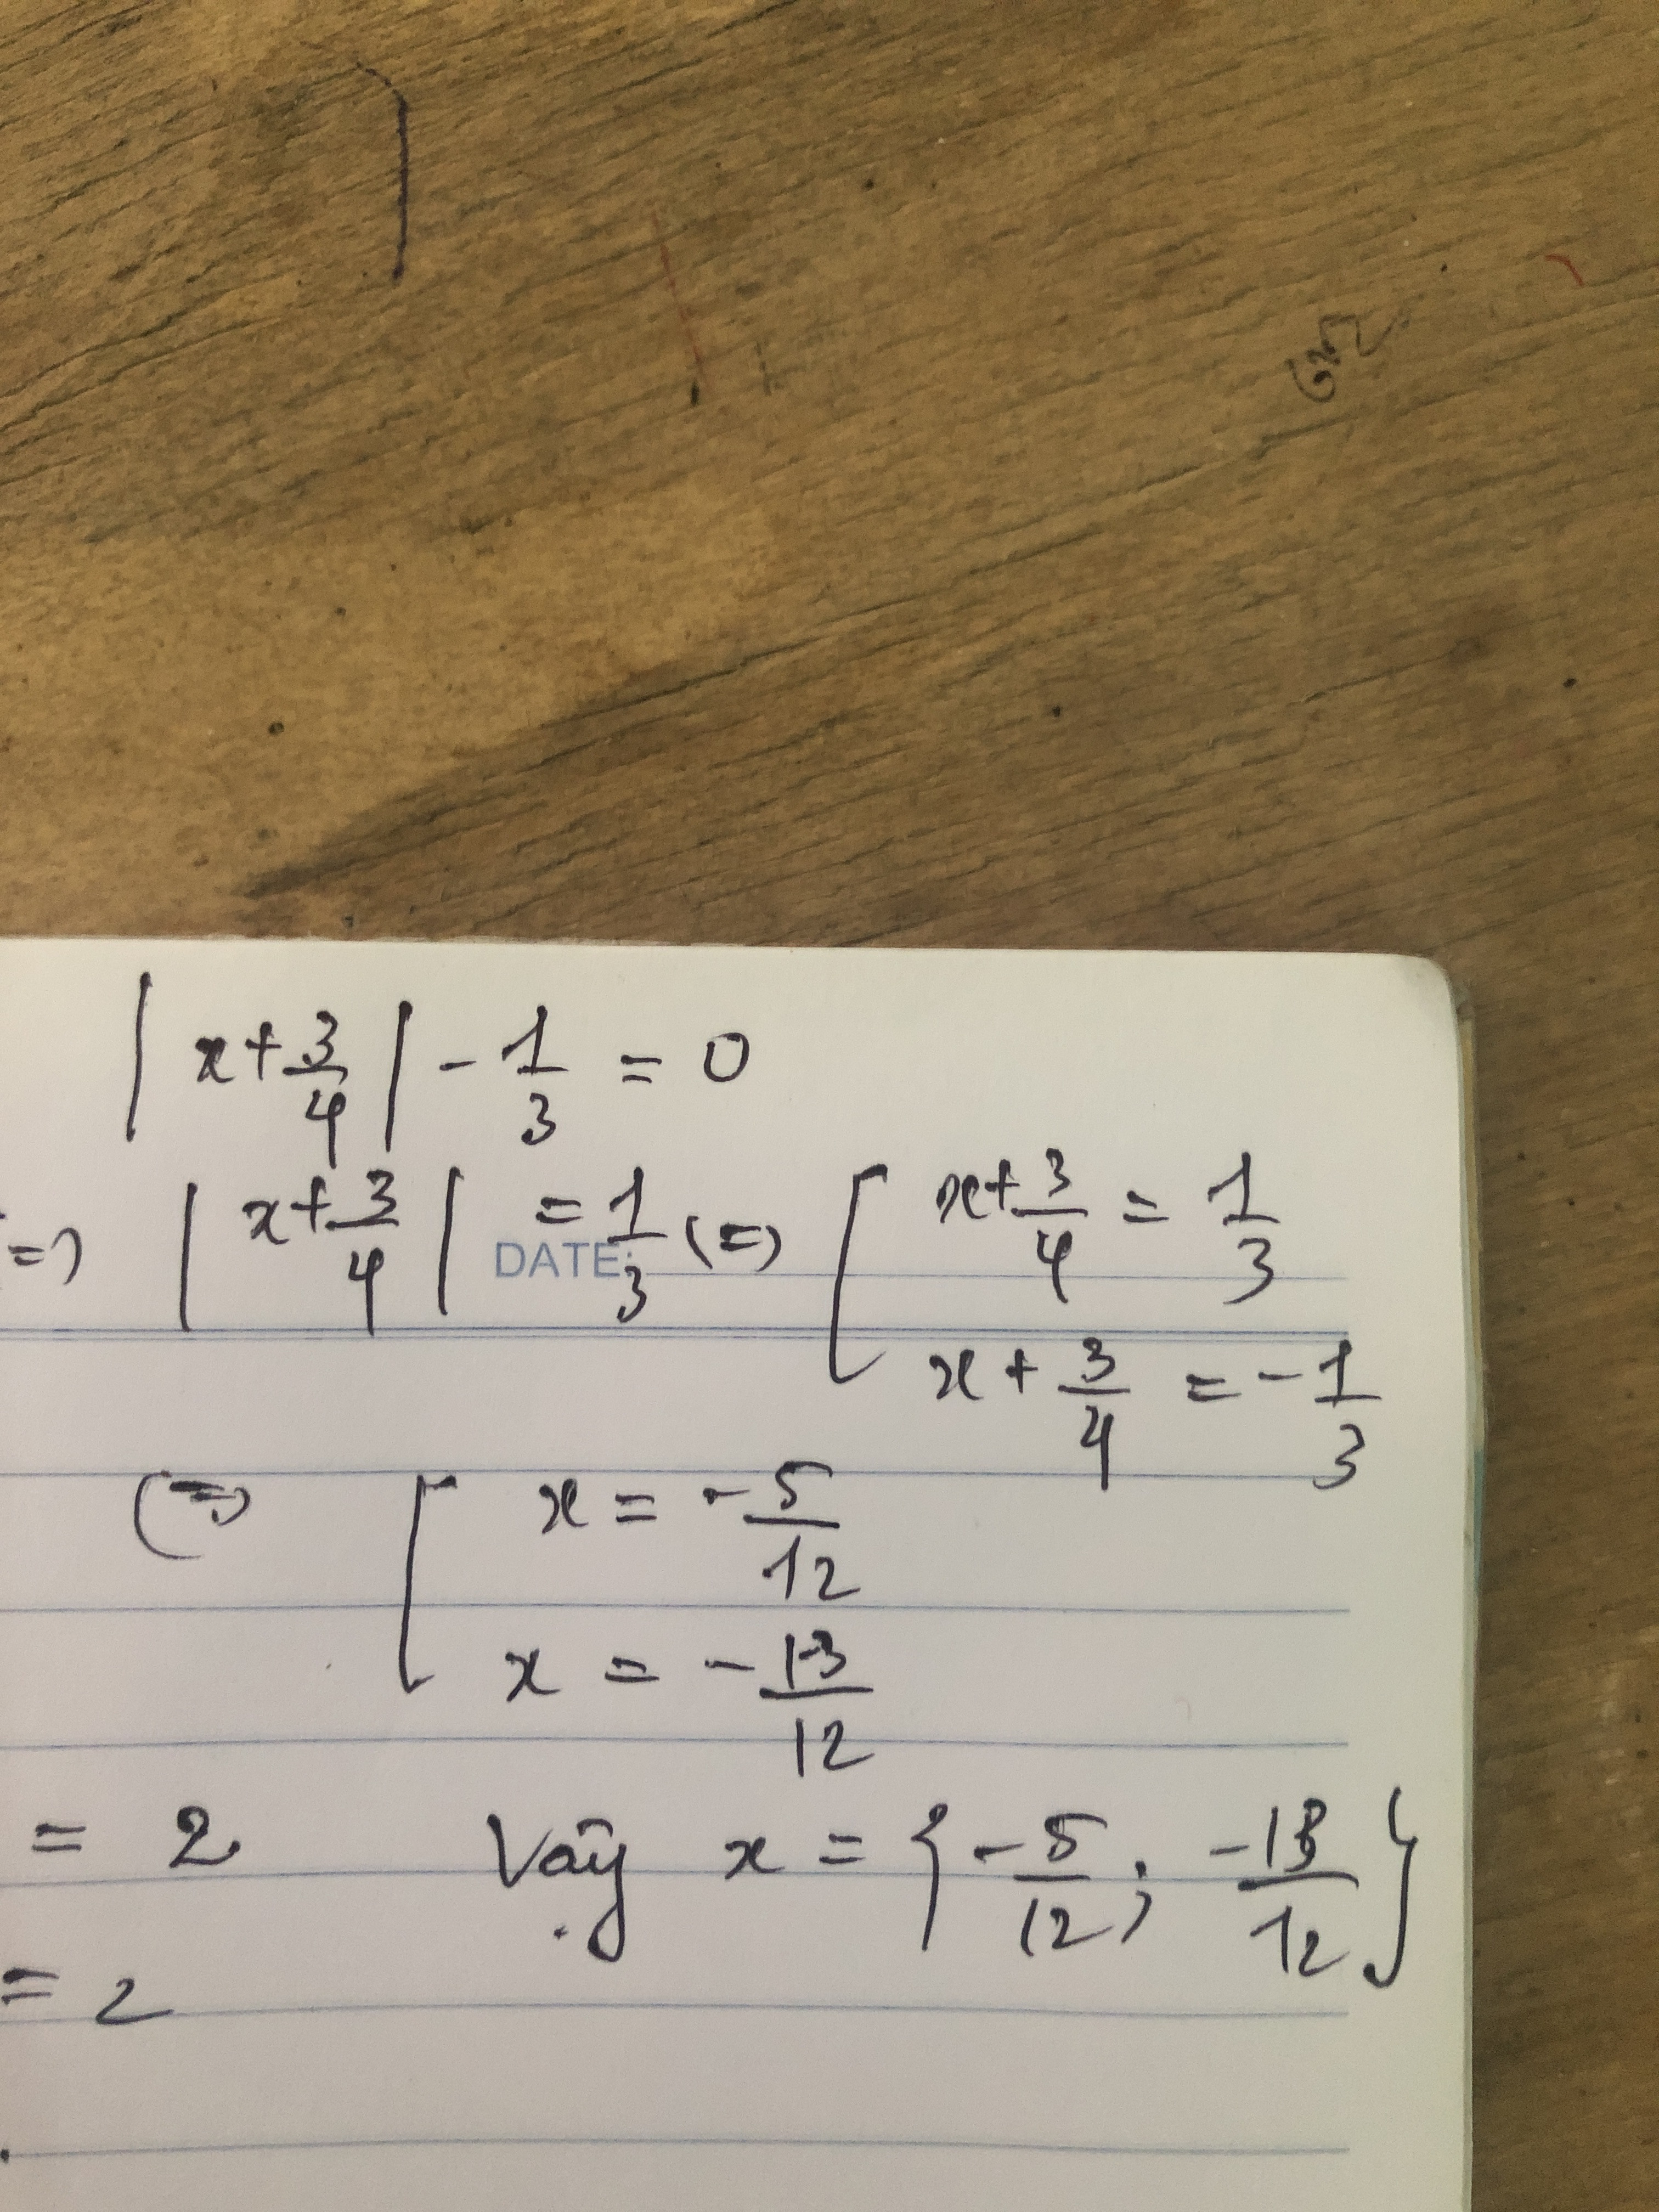 |x + 3/4| - 1/3 = 0
=> |x + 3/4| = 1/3 <=> [ x + 3/4 = 1/3
DATE:
x + 3/4 = -1/3
<=> [ x = -5/12
x = -13/12
= 2 Vậy x = {-5/12; -13/12}
= 2